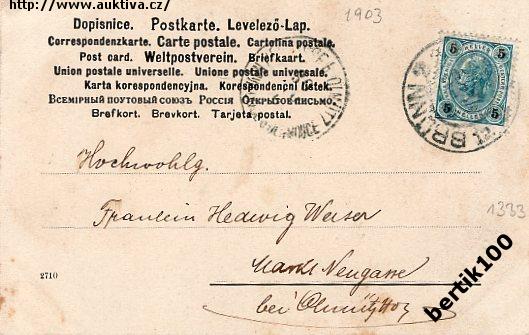 http://www.auktiva.cz/
1903
Dopisnice. Postkarte. Levelező-Lap.
Correspondenzkarte. Carte postale. Cartolina postale.
Post card. Weltpostverein. Briefkaart.
Union postale universelle. Unione postale universale.
Karta korespondencyjna. Korespondenčni listek.
Всемірный поутовый союзъ Россія Открытое письмо.
Brefkort. Brevkort. Tarjeta postal.
5 5
5 5
BRÜNN 2
Hochwohlg.
Fraulein Hedwig
Markt Neugasse
bei Olmütz
1333
2710
bertik100